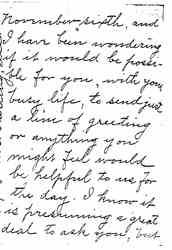 November sixth, and
I have been wondering
if it would be possi-
ble for you, with your
busy life, to send just
a line of greeting
or anything you
might feel would
be helpful to us for
the day. I know it
is presuming a great
deal to ask you, but